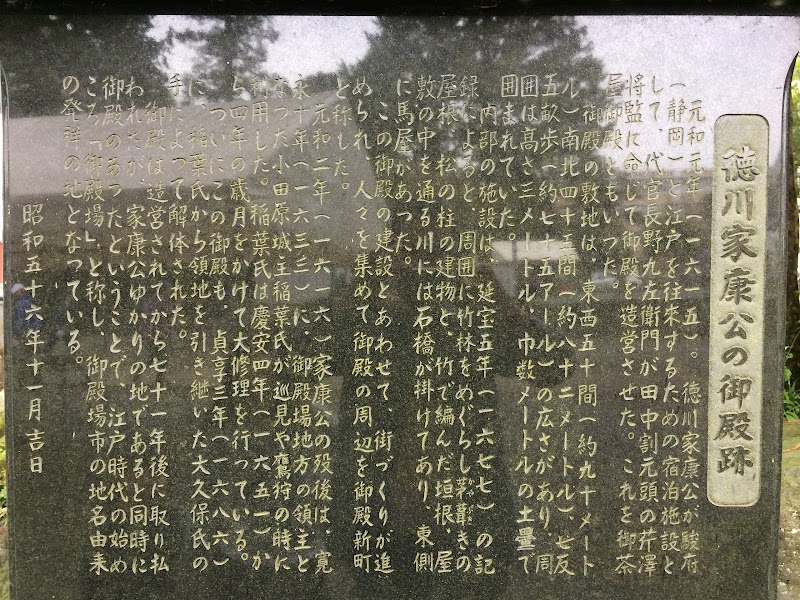 徳川家康公の御殿跡
元和元年(一六一五)。徳川家康公が駿府
(静岡)と江戸を往来するための宿泊施設と
して、代官長野九左衛門が田中割元頭の芹澤
将監に命じて御殿を造営させた。これを御茶
屋御殿ともいった。
御殿の敷地は、東西五十間(約九十メート
ル)南北四十五間(約八十二メートル)、七反
五畝歩(約七十五アール)の広さがあり、周
囲は高さ三メートル、巾数メートルの土塁で
囲まれていた。
内部の施設は、延宝五年(一六七七)の記
録によると、周囲に竹林をめぐらし茅葺きの
かやぶき
屋根、松の柱の建物と、竹で編んだ垣根、屋
敷の中を通る川には石橋が掛けてあり、東側
に馬屋があった。
この御殿の建設とあわせて、街づくりが進
められ、人々を集めて御殿の周辺を御殿新町
と称した。
元和二年(一六一六)家康公の歿後は、寛
永十年(一六三三)に、御殿場地方の領主と
なった小田原城主稲葉氏が巡見や鷹狩の時に
利用した。稲葉氏は慶安四年(一六五一)か
ら四年の歳月をかけて大修理を行っている。
ついにこの御殿も、貞享三年(一六八六)
に、稲葉氏から領地を引き継いだ大久保氏の
手によって解体された。
御殿は造営されてから七十一年後に取り払
われたが、家康公ゆかりの地であると同時に
御殿のあったということで、江戸時代の始め
ころ「御殿場」と称し、御殿場市の地名由来
の発祥の地となっている。
昭和五十六年十一月吉日